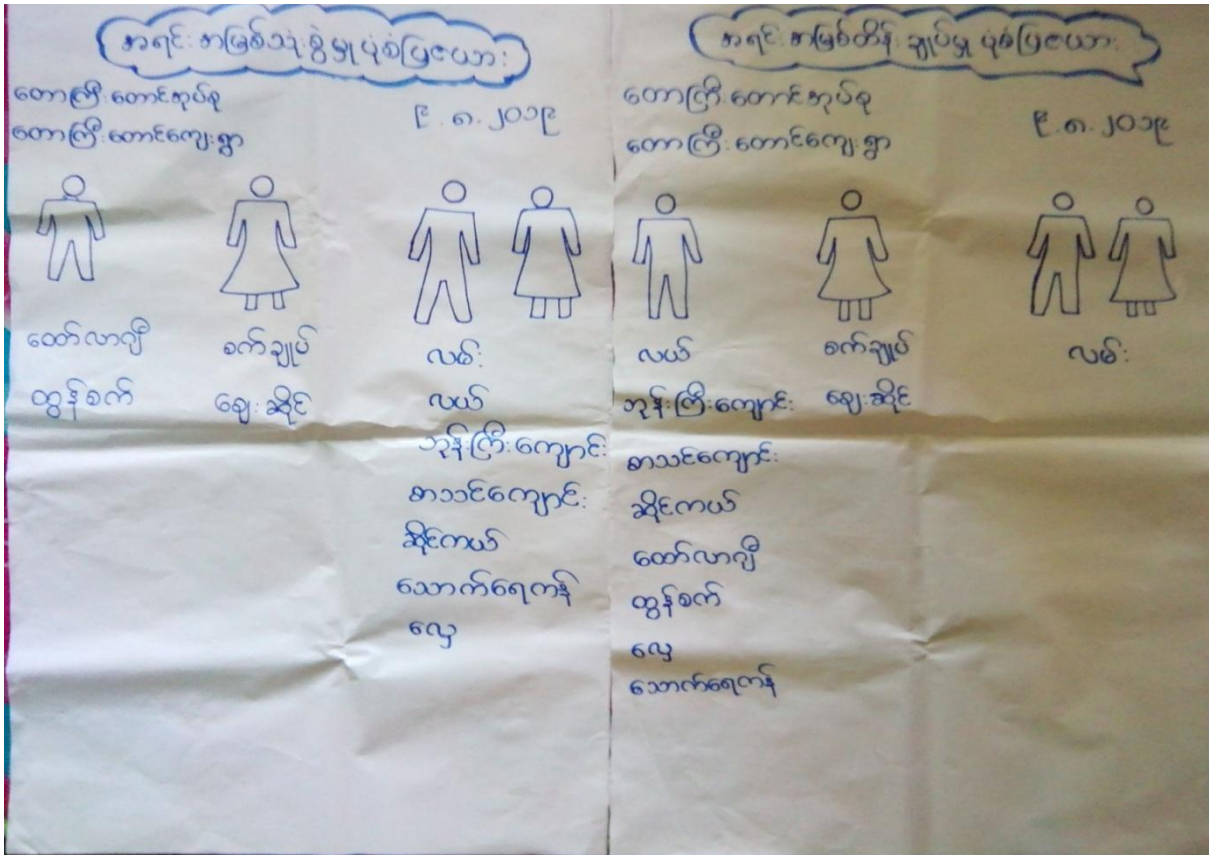 အရင်းအမြစ်သုံးစွဲမှုပုံစံပြဇယား
တောကြီးတောင်အုပ်စု
တောကြီးတောင်ကျေးရွာ
၉.၈.၂၀၁၉
ထော်လာဂျီ
ထွန်စက်
စက်ချုပ်
ဈေးဆိုင်
လမ်း
လယ်
ဘုန်းကြီးကျောင်း
စာသင်ကျောင်း
ဆိုင်ကယ်
သောက်ရေကန်
လှေ
အရင်းအမြစ်ထိန်းချုပ်မှုပုံစံပြဇယား
တောကြီးတောင်အုပ်စု
တောကြီးတောင်ကျေးရွာ
၉.၈.၂၀၁၉
လယ်
ဘုန်းကြီးကျောင်း
စာသင်ကျောင်း
ဆိုင်ကယ်
ထော်လာဂျီ
ထွန်စက်
လှေ
သောက်ရေကန်
စက်ချုပ်
ဈေးဆိုင်
လမ်း